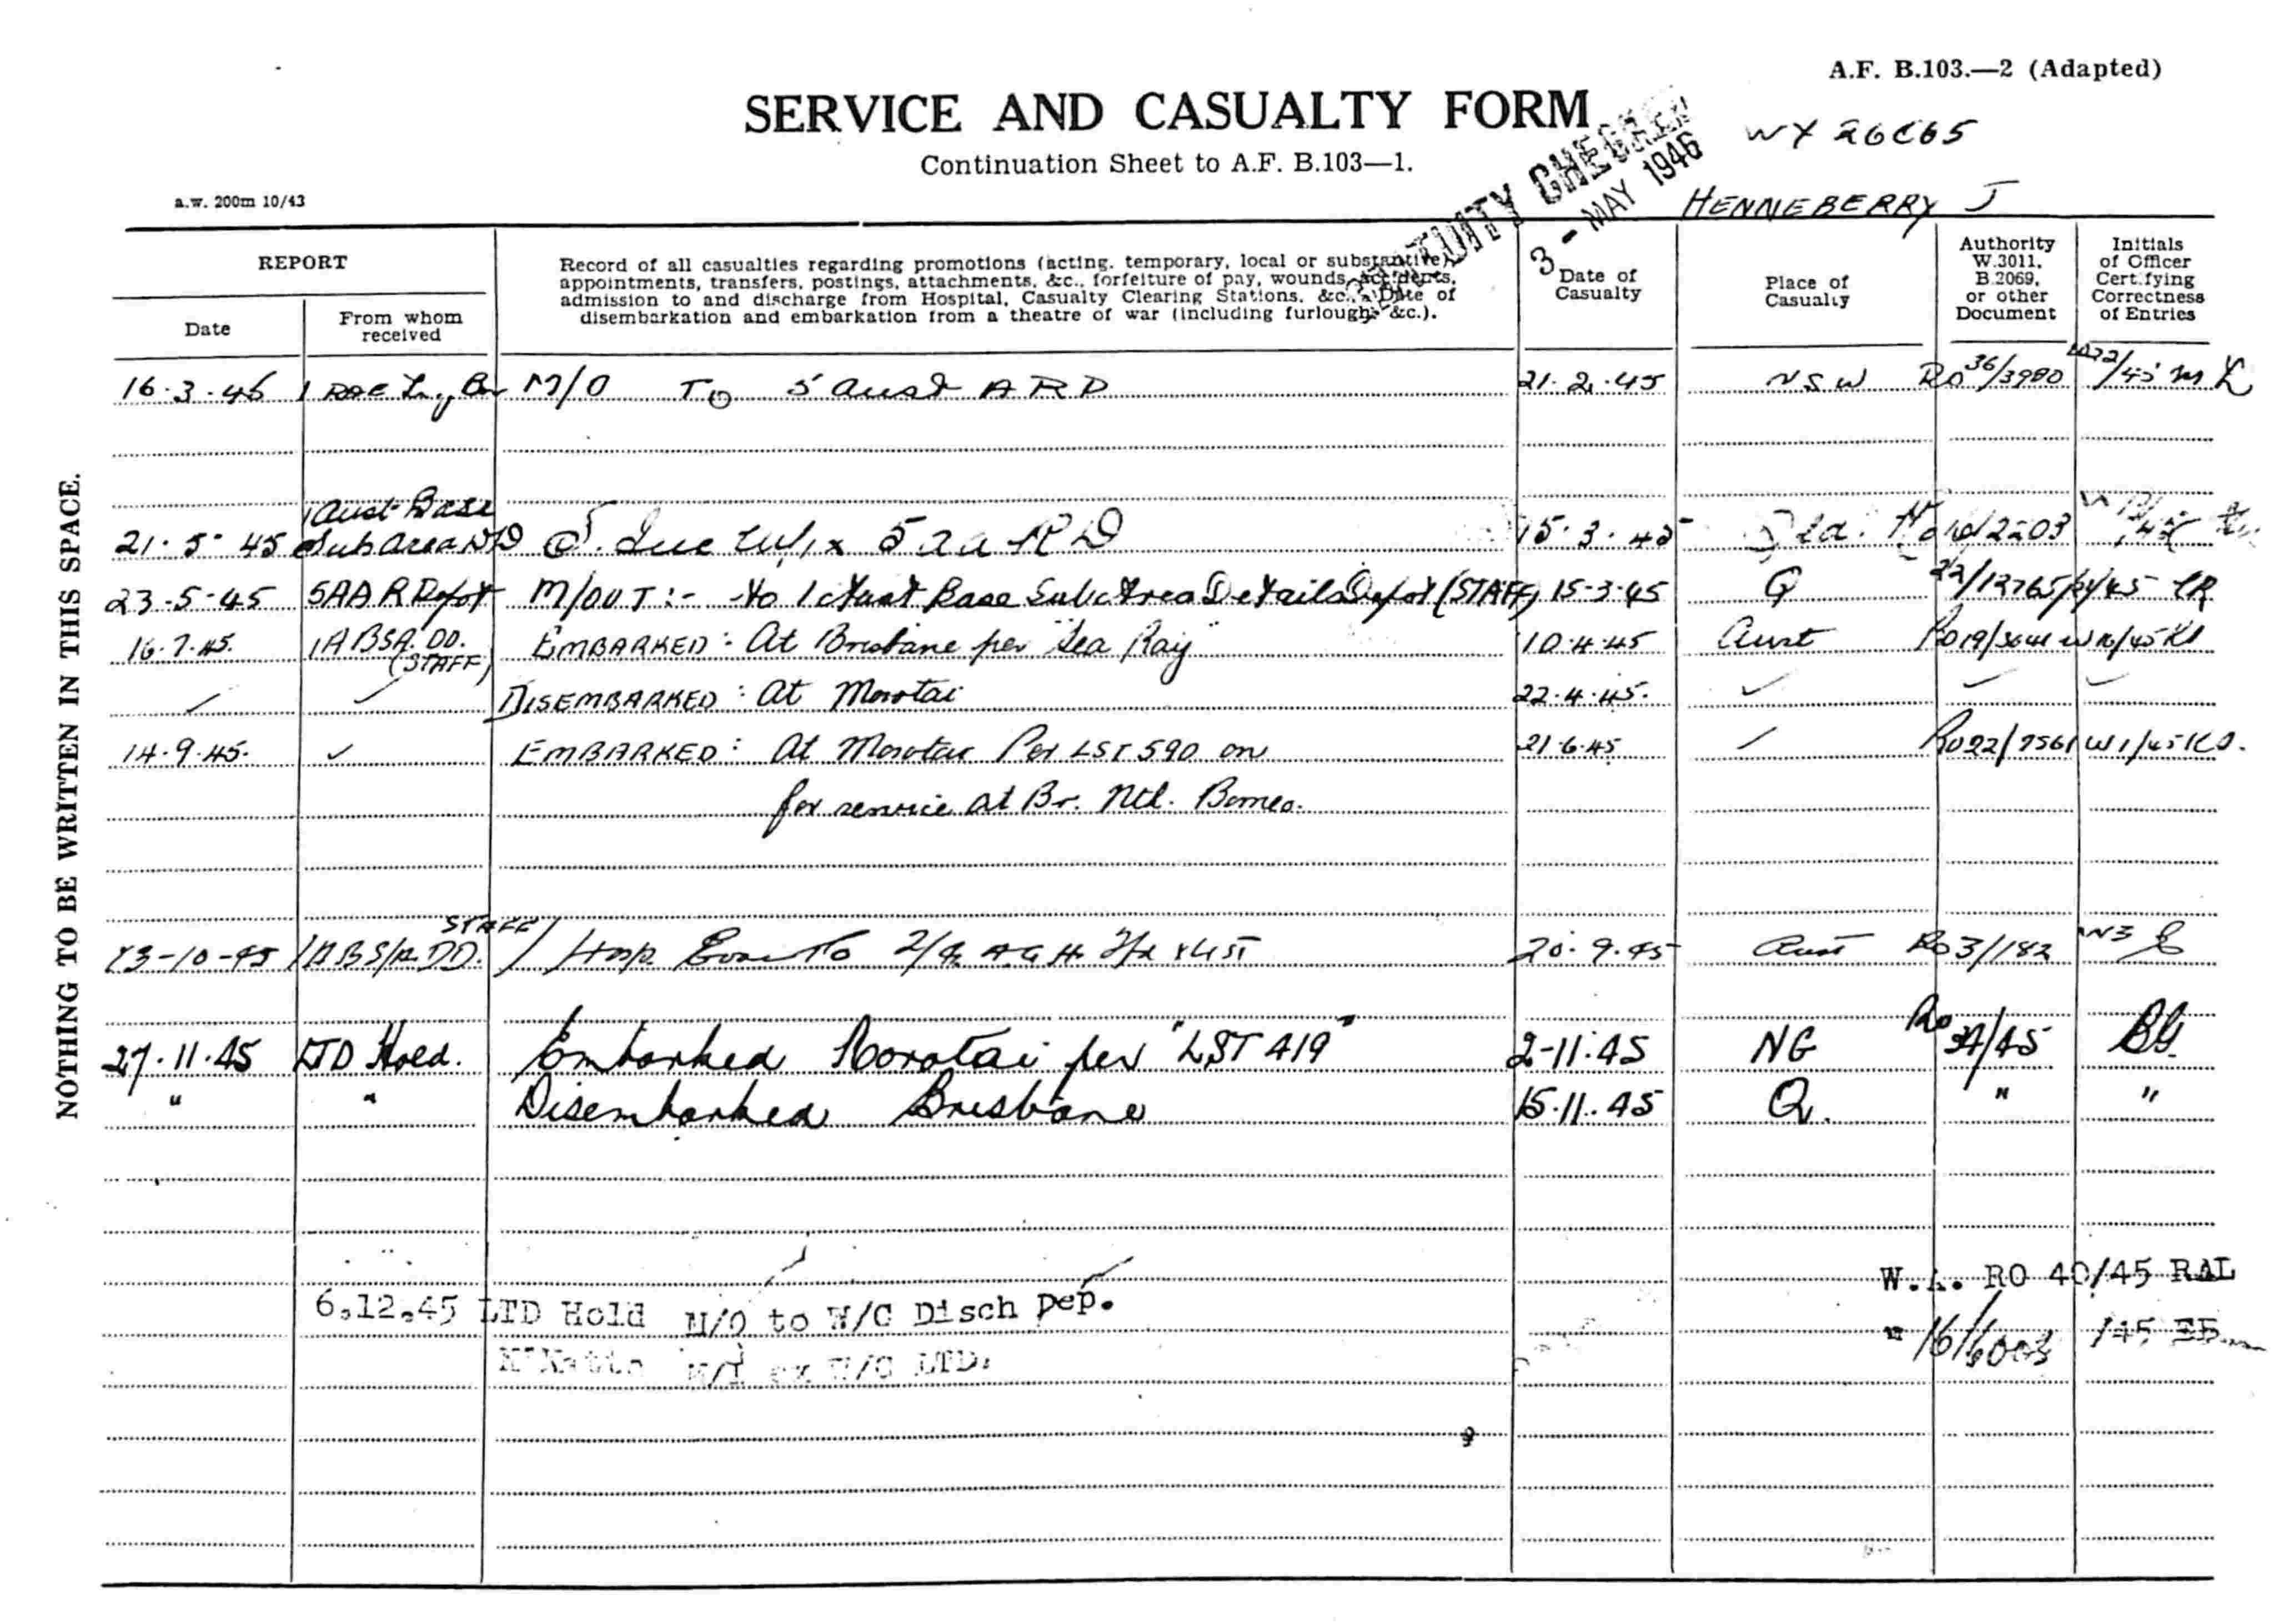 A.F. B.103.—2 (Adapted)
SERVICE AND CASUALTY FORM
WX 26C65
Continuation Sheet to A.F. B.103—1.
GRATUITY CHECKED
3 - MAY 1946
a.w. 200m 10/43
HENNEBERRY J
REPORT
Date
From whom received
Record of all casualties regarding promotions (acting. temporary, local or substantive),
appointments, transfers, postings, attachments, &c., forfeiture of pay, wounds, accidents,
admission to and discharge from Hospital, Casualty Clearing Stations, &c. Date of
disembarkation and embarkation from a theatre of war (including furlough, &c.).
Date of Casualty
Place of Casualty
Authority W.3011, B.2069, or other Document
Initials of Officer Certifying Correctness of Entries
NOTHING TO BE WRITTEN IN THIS SPACE.
16.3.45 1 RAE M/O TO 5 Aust A R D 21.2.45 NSW RO 36/3980
1 Aust Base
21.5.45 Sub Area DD 5 a a R D 15.3.45 2203
23-5-45 5AAR Depot M/OUT:- to 1 Aust Base Sub Area Details Depot (STAFF) 15-3-45 Q 22/12765 /45 CR
16.7.45. 1ABSA.DD. (STAFF) EMBARKED: At Brisbane per "Sea Ray" 10.4.45 Aust RO19/3644
DISEMBARKED: At Morotai 22.4.45.
14.9.45. EMBARKED: At Morotai Per LST 590 on 21.6.45 RO22/7561 W1/45
for service at Br. Nth. Borneo.
13-10-45 1ABS/A.DD. STAFF Hosp Evac To 2/4 AGH X LIST 20.9.45 Aust RO 3/182
27.11.45 LTD Hold. Embarked Morotai per "LST 419" 2-11-45 NG RO 34/45 BG.
" " Disembarked Brisbane 15.11.45 Q. " "
6.12.45 LTD Hold M/O to W/C Disch Dep. W.A. RO 40/45 RAL
M/I ex W/C LTD. " 16/6003 /45 EB